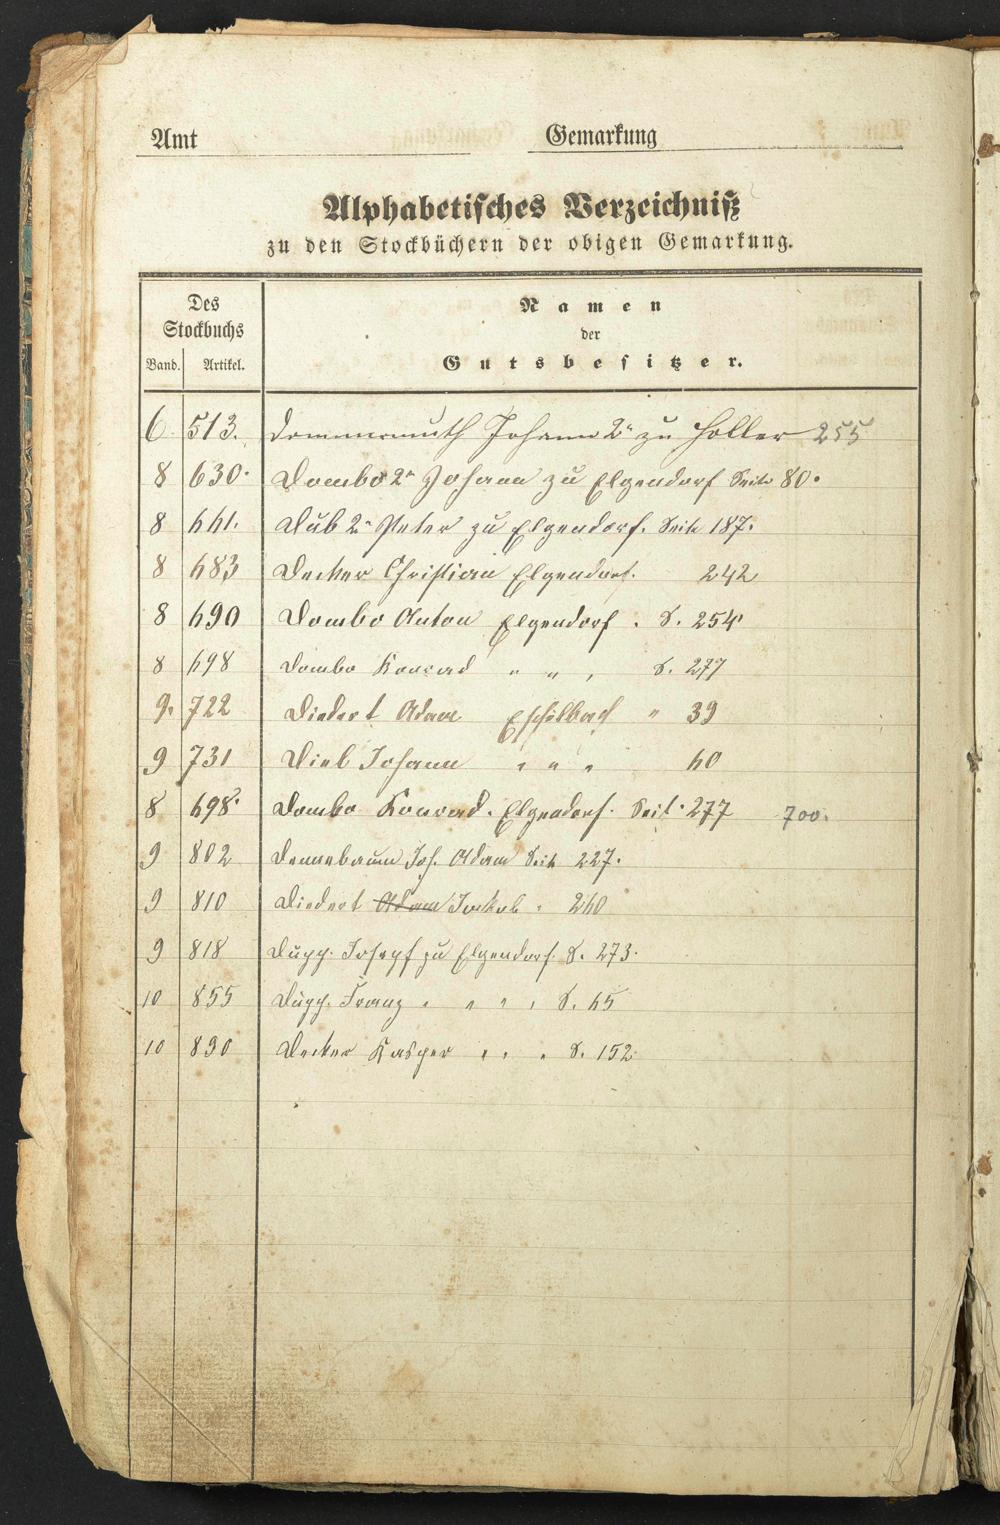 Amt Gemarkung
Alphabetisches Verzeichniß
zu den Stockbüchern der obigen Gemarkung.
Des
Stockbuchs
Band. Artikel.
Namen
der
Gutsbesitzer.
6 513. Dommermuth Johann 2r zu Holler 255
8 630. Dombo 2r Johann zu Elgendorf Seite 80.
8 661. Dub 2r Peter zu Elgendorf. Seite 187.
8 683 Decker Christian Elgendorf. 242
8 690 Dombo Anton Elgendorf. S. 254
8 698 Dombo Konrad " " , S. 277
9. 722 Diedert Adam Eschelbach " 39
9 731 Diel Johann " " " 60
8 698. Dombo Konrad. Elgendorf. Seit. 277 700.
9 802 Dennebaum Joh. Adam Seite 227.
9 810 Diedert Adam Jakob . 260
9 818 Düpp. Joseph zu Elgendorf. S. 273.
10 855 Düpp. Franz " " " " S. 65
10 890 Decker Kasper " " " S. 152.